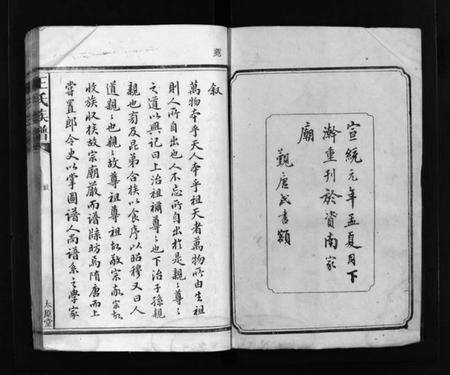 宣統元年孟夏月下
澣重刊於資南家
廟
觀唐氏書額
叙
萬物本乎天人本乎祖天者萬物所由生祖
則人所自出也人不忘所自出於是親親尊尊
之道以興記曰上治祖禰尊尊也下治子孫親
親也旁及昆弟合族以食序以昭穆又曰人
道親親也親親故尊祖尊祖故敬宗敬宗故
收族收族故宗廟嚴而譜牒昉焉隋唐而上
嘗置郎令史以掌圖譜人尚譜系之學家
王氏族譜
叙
太原堂